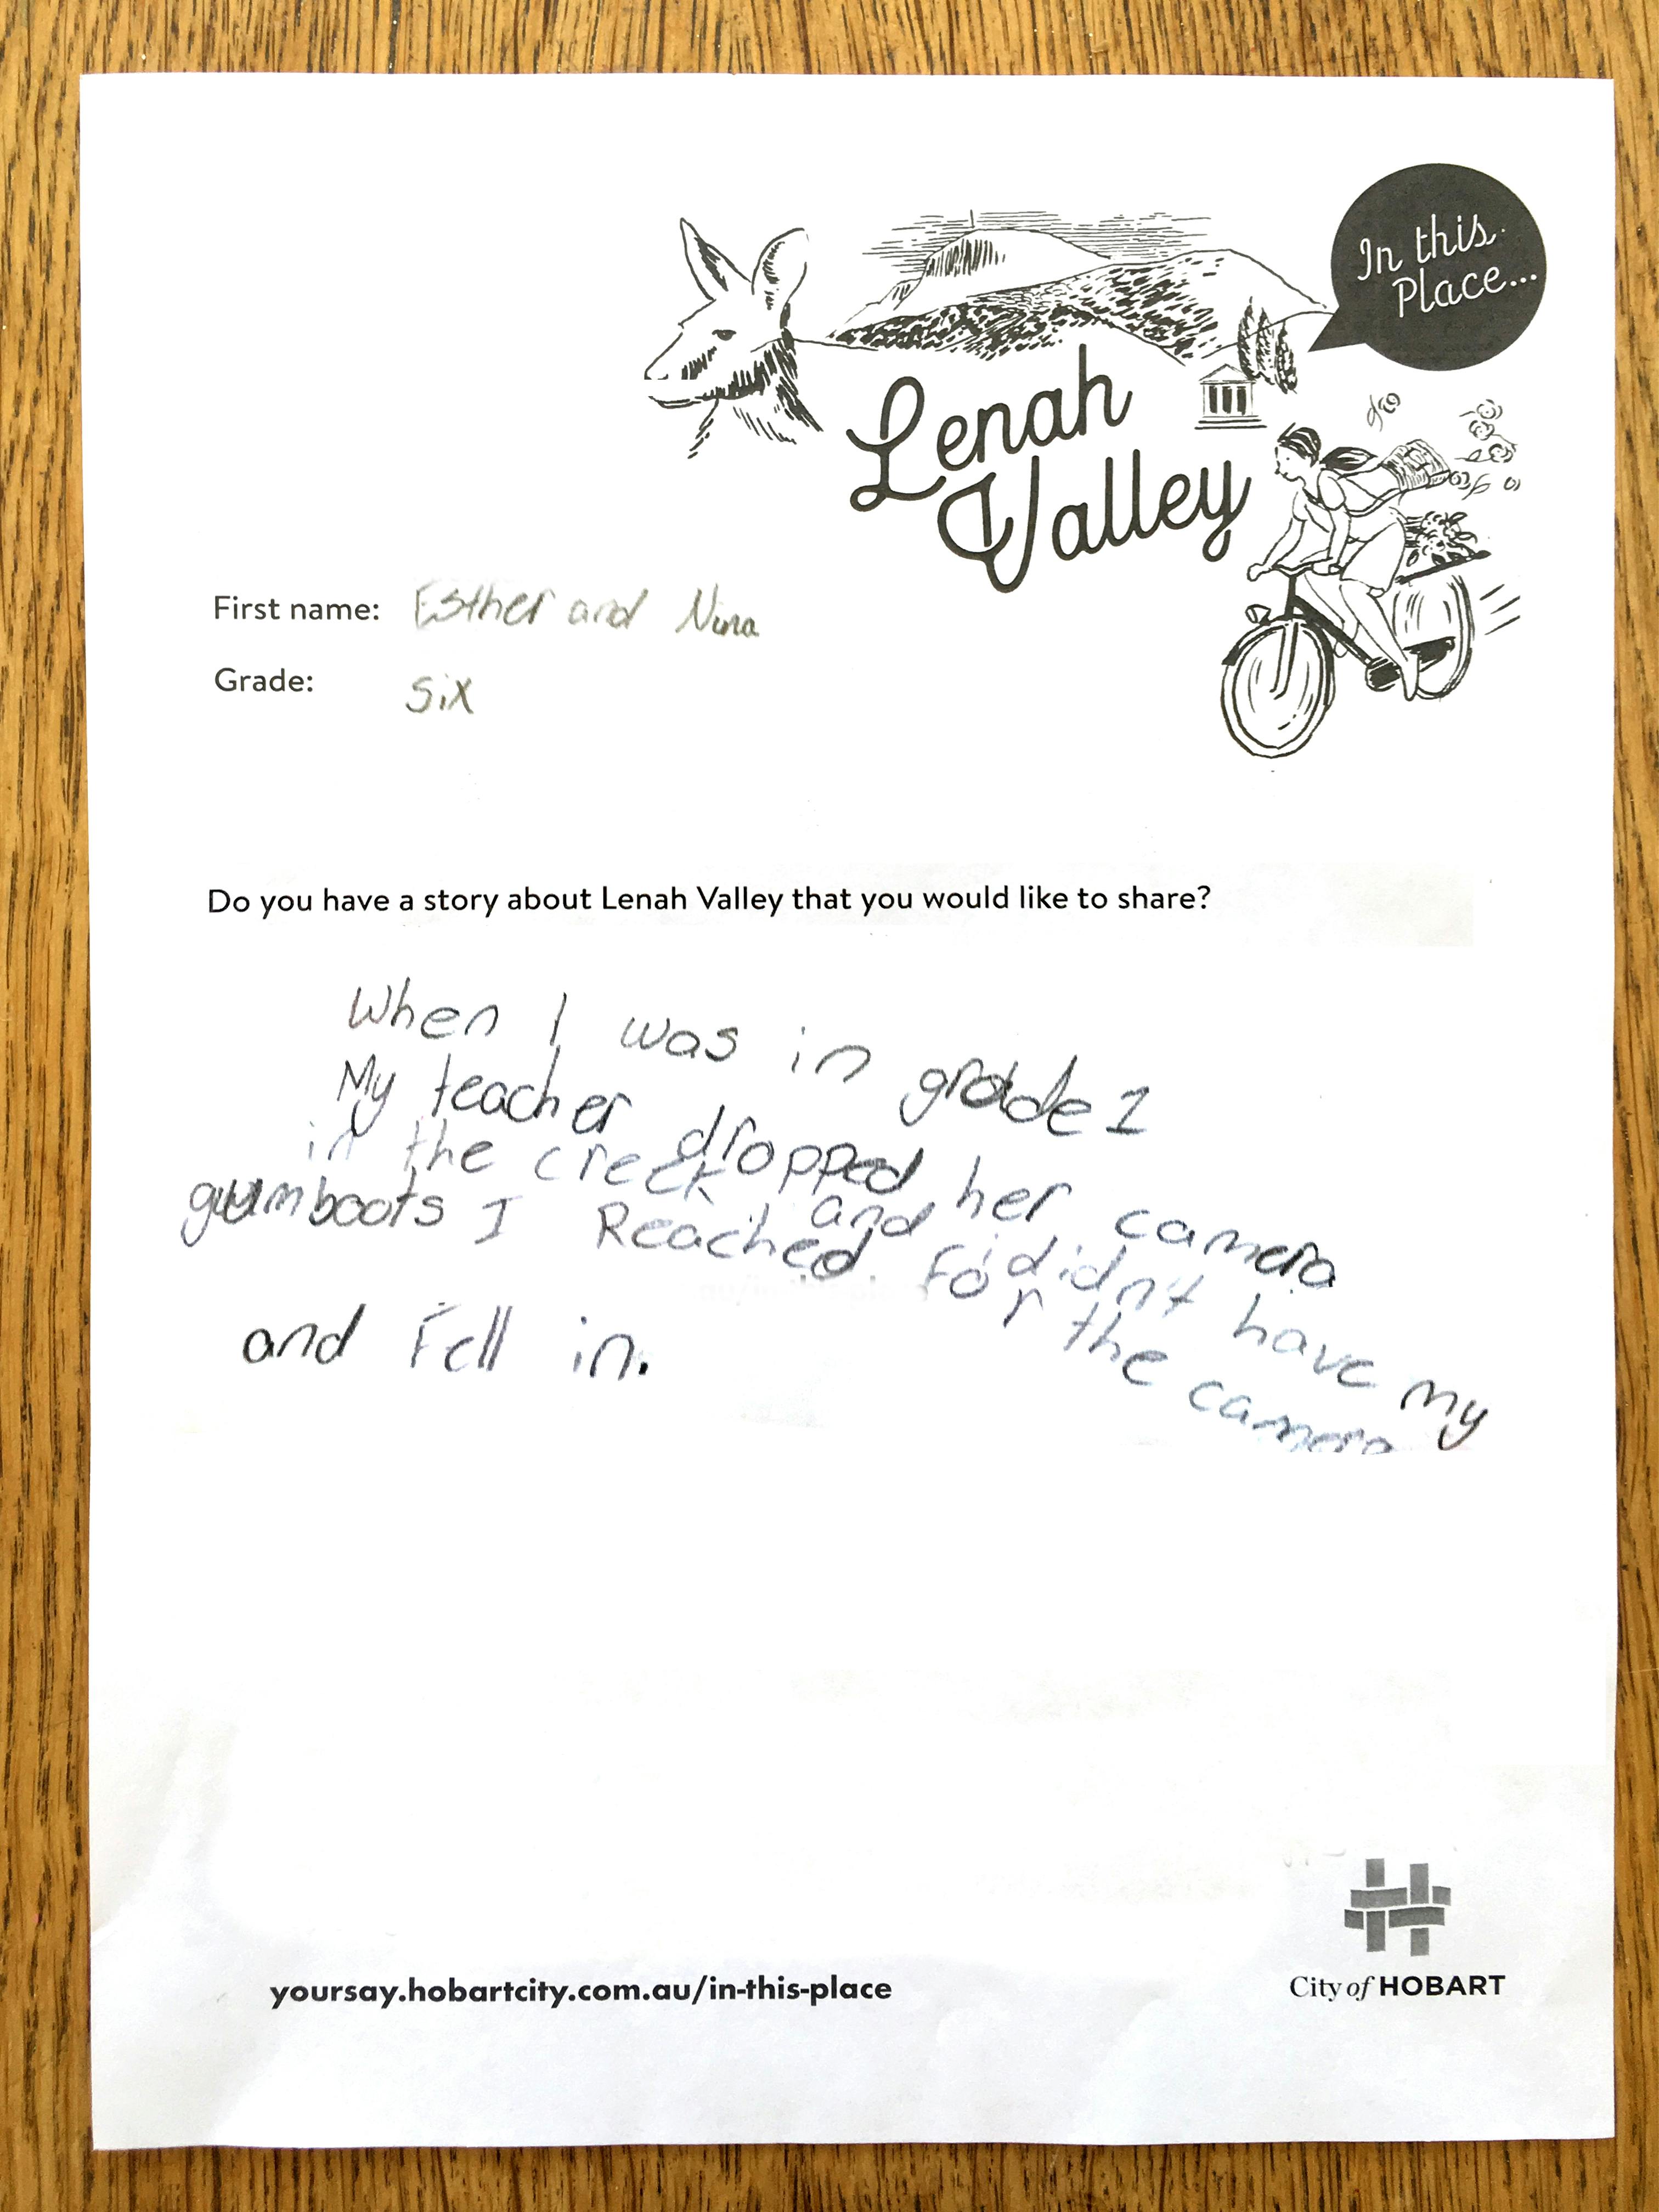 In this
Place...
Lenah
Valley
First name: Esther and Nina
Grade: Six
Do you have a story about Lenah Valley that you would like to share?
When I was in grade 1
My teacher dropped her camera
in the creek and didn't have my
gumboots I Reached For the camera
and Fell in.
yoursay.hobartcity.com.au/in-this-place
City of HOBART